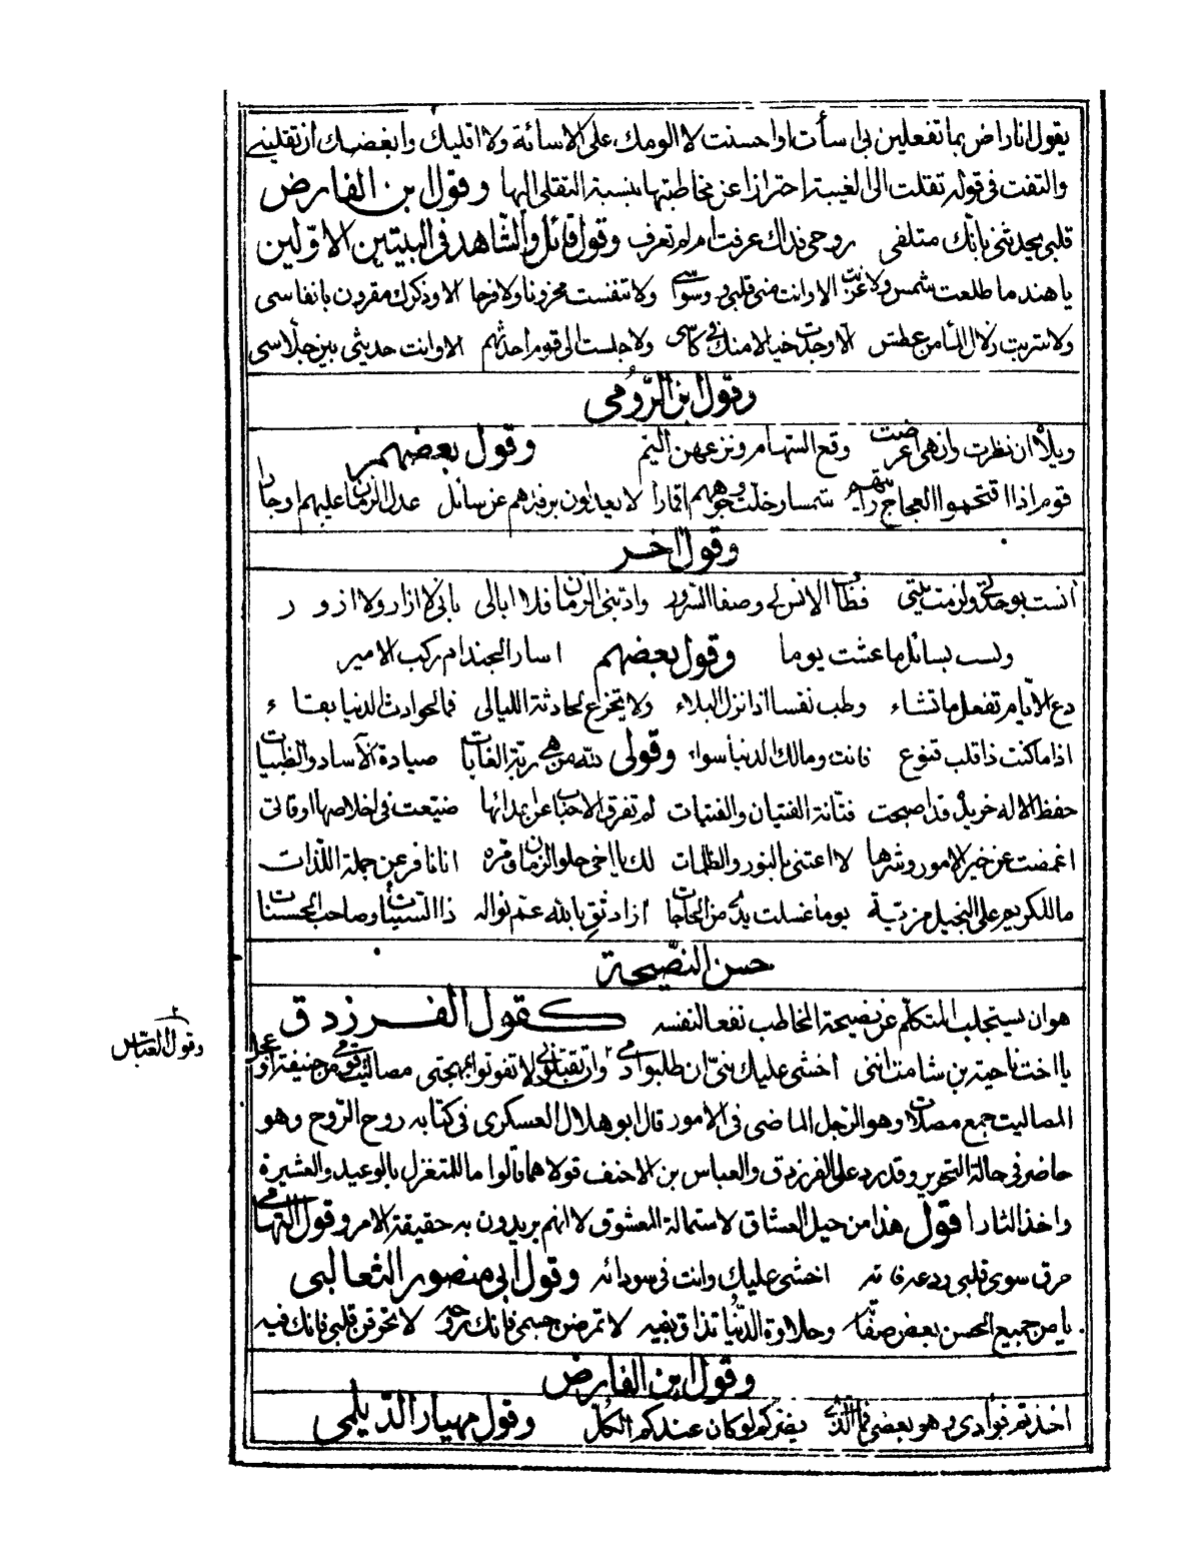 يقول انا راض بما تفعلين بى اسأت او احسنت لا الومك على الاسائة ولا اقليك وابغضك ان تقليني
والتفت فى قوله تقلت الى الغيبة احترازا عن مخاطبتها بنسبة التقلى اليها وقول ابن الفارض
قلبى يحدثنى بانك متلفى روحى فداك عرفت ام لم تعرف وقول قائل والشاهد فى البيتين الاولين
يا هند ما طلعت شمس ولا غربت الا وانت منى قلبى ووسواسى ولا تنفست محزونا ولا فرحا الا وذكرك مقرون بانفاسى
ولا شربت زلال المأ من عطش الا وجدت خيالا منك فى كاسى ولا جلست الى قوم احدثهم الا وانت حديثى بين جلاسى
وقول ابن الرومى
ويلاه ان نظرت وان هى اعرضت وقع السهام ونزعهن اليم وقول بعضهم
قوم اذا اقتحموا العجاج رايتهم شمسا وخلت وجوههم اقمارا لا يعدلون برفدهم عن سائل عدل الزمان عليهم او جارا
وقول اخر
انست بوحدتى ولزمت بيتى فطاب الانس لى وصفا السرور وادبنى الزمان فلا ابالى بانى لا ازار ولا ازور
ولست بسائل ما عشت يوما وقول بعضهم اسار الجند ام ركب الامير
دع الايام تفعل ما تشاء وطب نفسا اذا نزل البلاء ولا تجزع لحادثة الليالى فما لحوادث الدنيا بقاء
اذا ما كنت ذا قلب قنوع فانت ومالك الدنيا سواء وقولى لله من هى ربة الغابات صيادة الآساد والظبيات
حفظ الاله خريدة قد اصبحت فتانة الفتيان والفتيات لم تفرق الاحباب عن اعدائها ضيعت فى اخلاصها اوقاتى
اغمضت عن خير الامور وشرها لا اعتنى بالنور والظلمات لك يا اخى حلو الزمان ومره انا نافر عن جملة اللذات
ما للكريم على البخيل مزية يوما غسلت يدى من الحاجات ازاد ثق بالله عم نواله ذا السيئات وصاحب الحسنات
حسن النصيحة
هو ان يستجلب المتكلم عن نصيحة المخاطب نفعا لنفسه كقول الفرزدق
يا اخت ناجية بن شامت اننى اخشى عليك بنى ان طلبوا دمى وان تقتلى لا تفوتوا بمهجتى مصاليت قومى من حنيفة او عجل
وقول العباس
المصاليت جمع مصلات وهو الرجل الماضى فى الامور قال ابو هلال العسكرى فى كتابه روح الروح وهو
حاضر فى حالة التحرير وقد رد على الفرزدق والعباس بن الاحنف قولاهما قالوا ما للمتغزل بالوعيد والعشيرة
واخذ الثار اقول هذا من حيل العشاق لاستمالة المعشوق لا انهم يريدون به حقيقة الامر وقول التهامى
حرق سوى قلبى ودعه فانه اخشى عليك وانت فى سودائه وقول ابى منصور الثعالبى
يا من جميع الحسن بعض صفاته وحلاوة الدنيا تذاق بفيه لا تمرضن جسمى فانك روحه لا تحرقن قلبى فانك فيه
وقول ابن الفارض
اخذتم فؤادى وهو بعضى فما الذى يضركم لو كان عندكم الكل وقول مهيار الديلمى